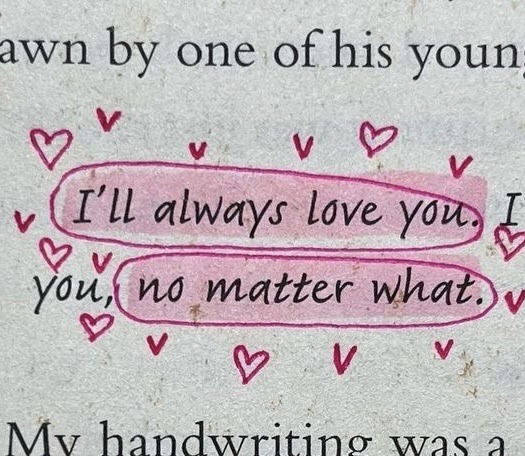 awn by one of his young
I'll always love you. I
you, no matter what.
My handwriting was a